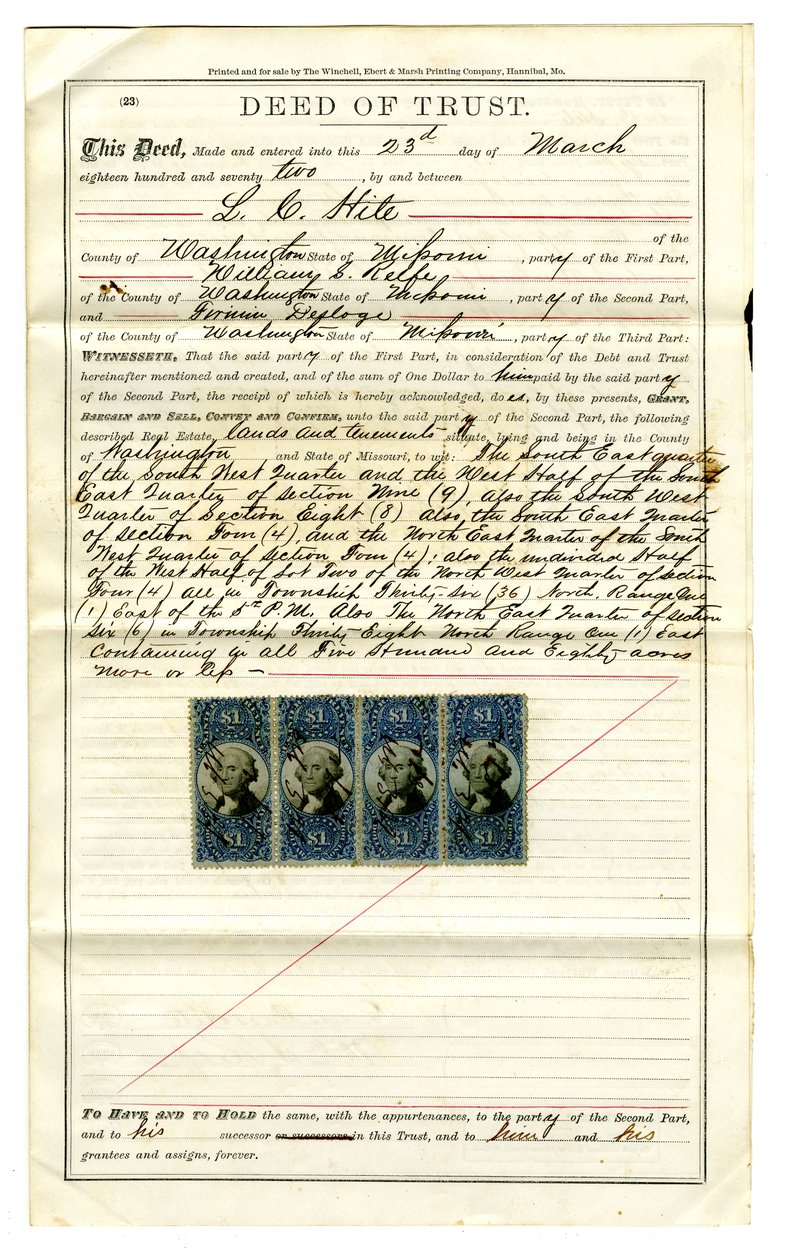 Printed and for sale by The Winchell, Ebert & Marsh Printing Company, Hannibal, Mo.
(23)
DEED OF TRUST.
This Deed, Made and entered into this 23d day of March
eighteen hundred and seventy two, by and between
L. C. Hite
of the
County of Washington State of Missouri, party of the First Part,
William S. Relfe
of the County of Washington State of Missouri, party of the Second Part,
and Firmin Desloge
of the County of Washington State of Missouri, party of the Third Part:
WITNESSETH, That the said party of the First Part, in consideration of the Debt and Trust
hereinafter mentioned and created, and of the sum of One Dollar to him paid by the said party
of the Second Part, the receipt of which is hereby acknowledged, does, by these presents, GRANT,
BARGAIN AND SELL, CONVEY AND CONFIRM, unto the said party of the Second Part, the following
described Real Estate, lands and tenements situate, lying and being in the County
of Washington and State of Missouri, to wit: The South East quarter
of the South West Quarter and the West Half of the South
East Quarter of section Nine (9), also the South West
Quarter of Section Eight (8) also, the South East Quarter
of section Four (4), and the North East Quarter of the South
West Quarter of Section Four (4); also the undivided Half
of the West Half of Lot Two of the North West Quarter of section
Four (4) all in Township Thirty-Six (36) North, Range One
(1) East of the 5th P.M. Also The North East Quarter of section
six (6) in Township Thirty Eight North Range One (1) East
containing in all Five Hundred and Eighty acres
more or less
$1 $1 $1 $1
$1 $1 $1 $1
TO HAVE AND TO HOLD the same, with the appurtenances, to the party of the Second Part,
and to his successor or successors in this Trust, and to him and his
grantees and assigns, forever.